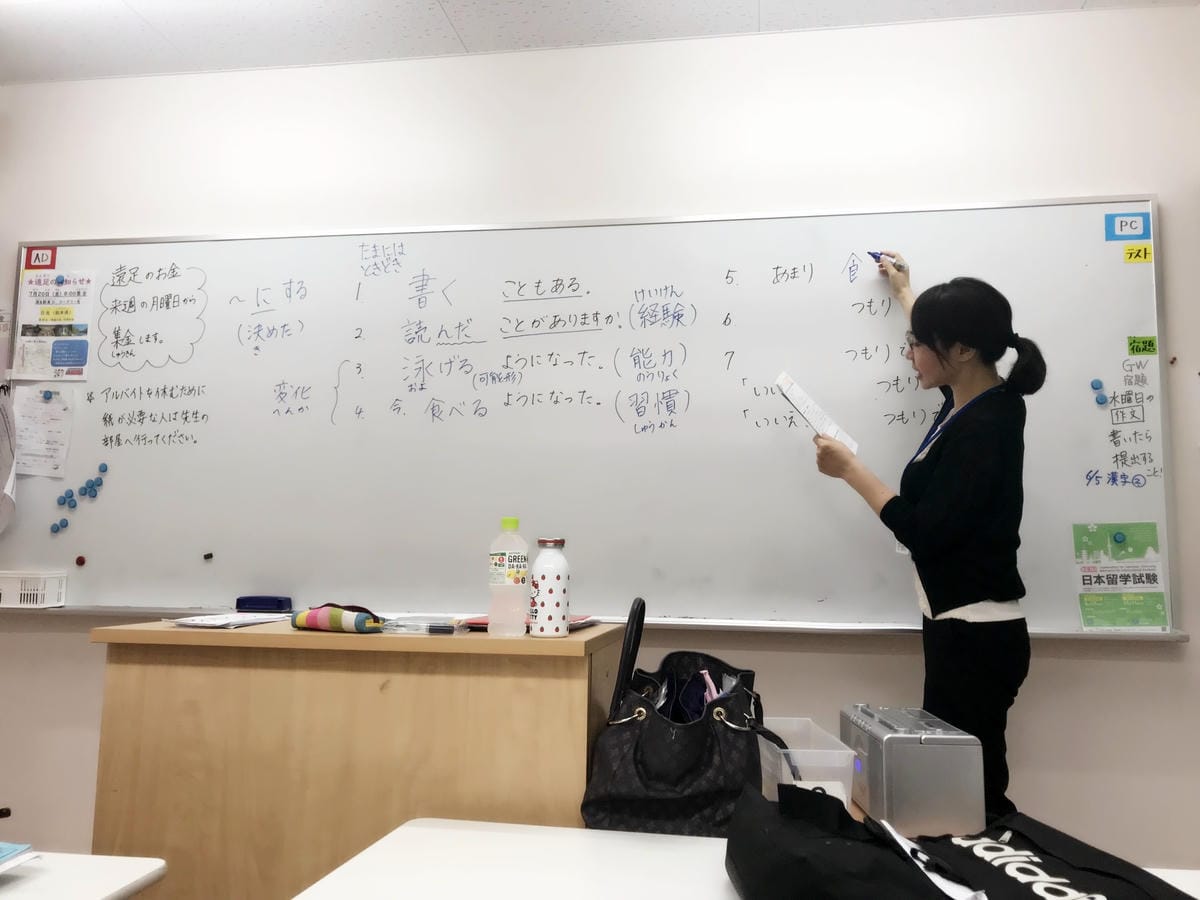 AD
★遠足のお知らせ★
遠足のお金
来週の月曜日から
集金します。
しゅうきん
アルバイトを休むために
紙が必要な人は先生の
部屋へ行ってください。
～にする
(決めた)
き
変化
へんか
たまには
ときどき
1. 書く こともある。
2. 読んだ ことがありますか?(経験)
けいけん
3. 泳げる ようになった。(能力)
およ
(可能形)
のうりょく
4. 今、食べる ようになった。(習慣)
しゅうかん
5. あまり 食
つもり
6
7 つもり
「いい
つもり
「いいえ、
つもり
PC
テスト
宿題
GW
宿題
水曜日の
作文
書いたら
提出する
こと!
6/5 漢字②
日本留学試験
GREEN
DA・KA・RA
adidas